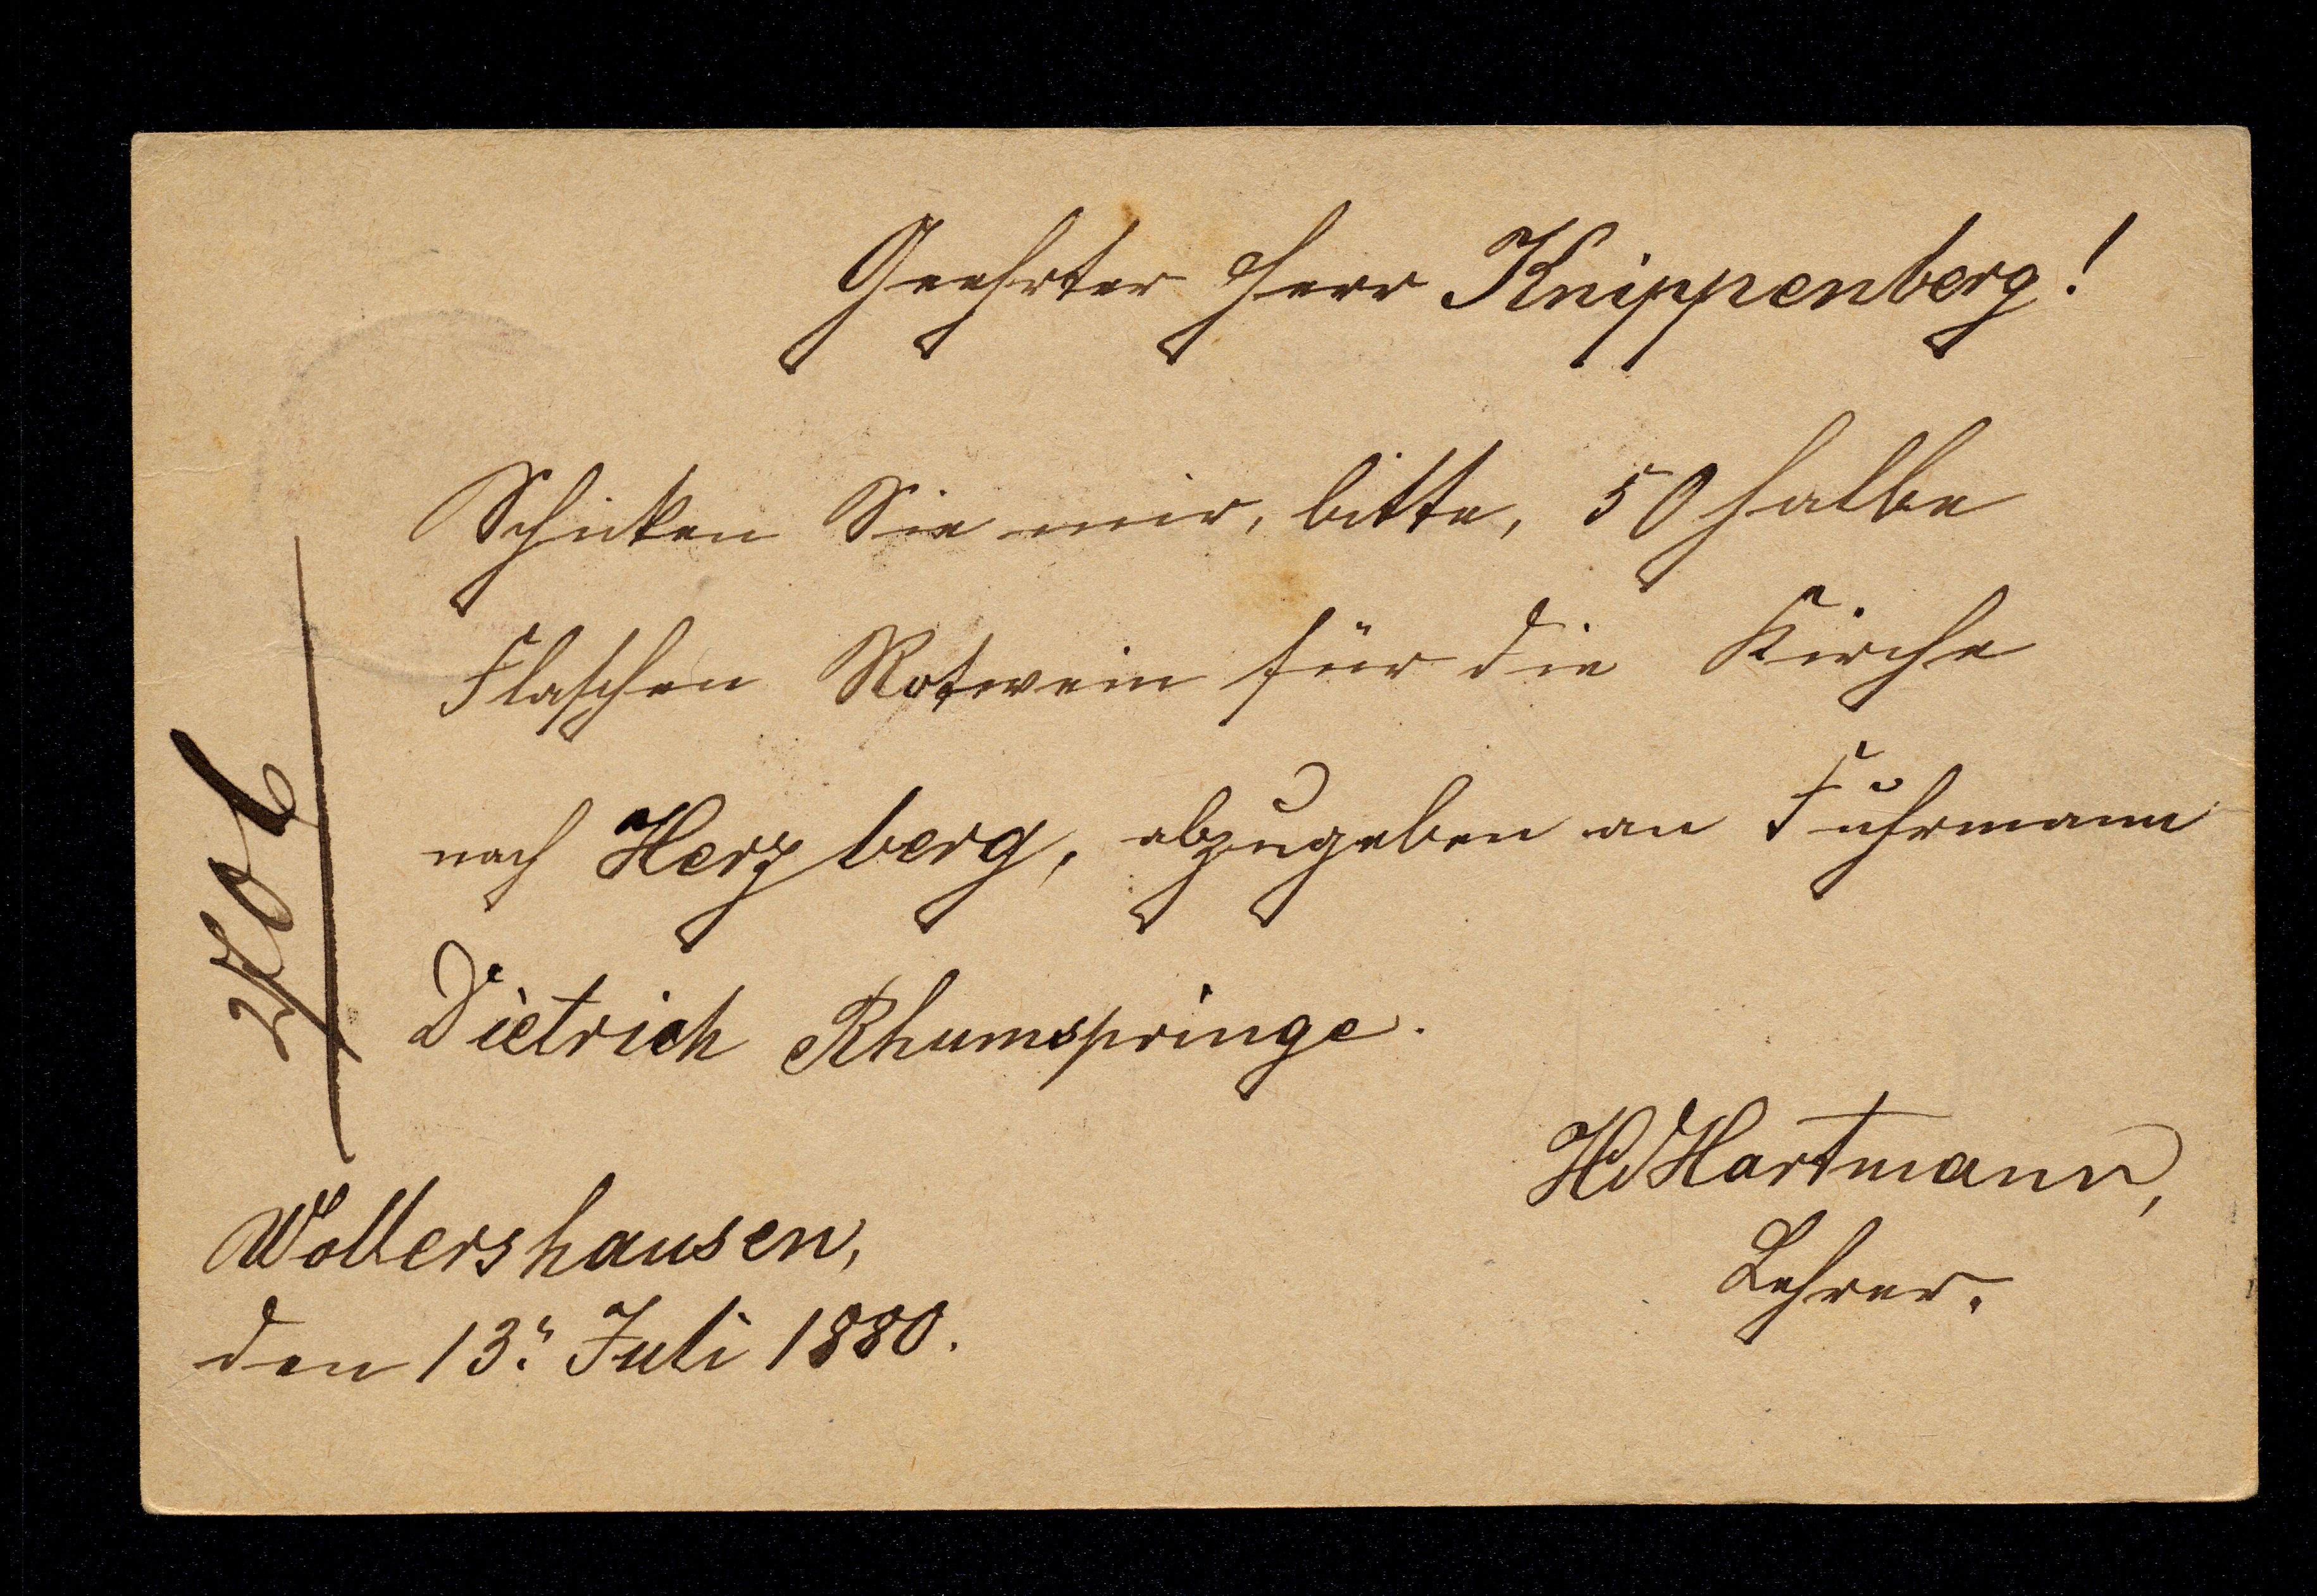 Geehrter Herr Knippenberg!
Schicken Sie mir, bitte, 50 halbe
Flaschen Rotwein für die Kirche
nach Herzberg, abzugeben an Fuhrmann
Dietrich Rhumspringe.
H Hartmann,
Lehrer.
Wollershausen,
den 13. Juli 1880.